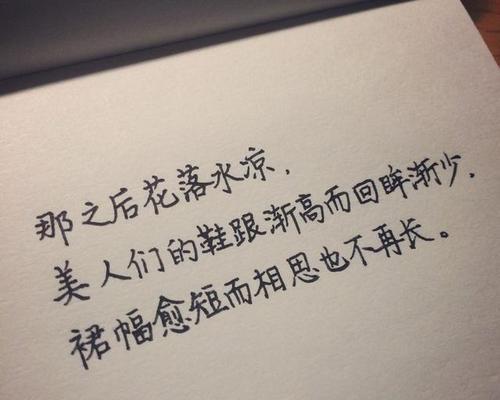 那之后花落水凉，
美人们的鞋跟渐高而回眸渐少，
裙幅愈短而相思也不再长。